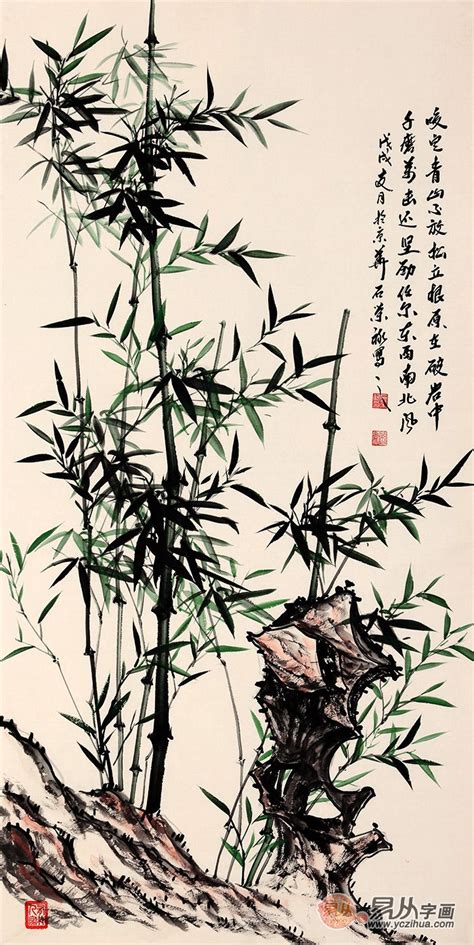 咬定青山不放松立根原在破岩中
千磨萬击还坚劲任尔东西南北风
戊戌夏月於京華石荣禄写
易从字画
www.yczihua.com